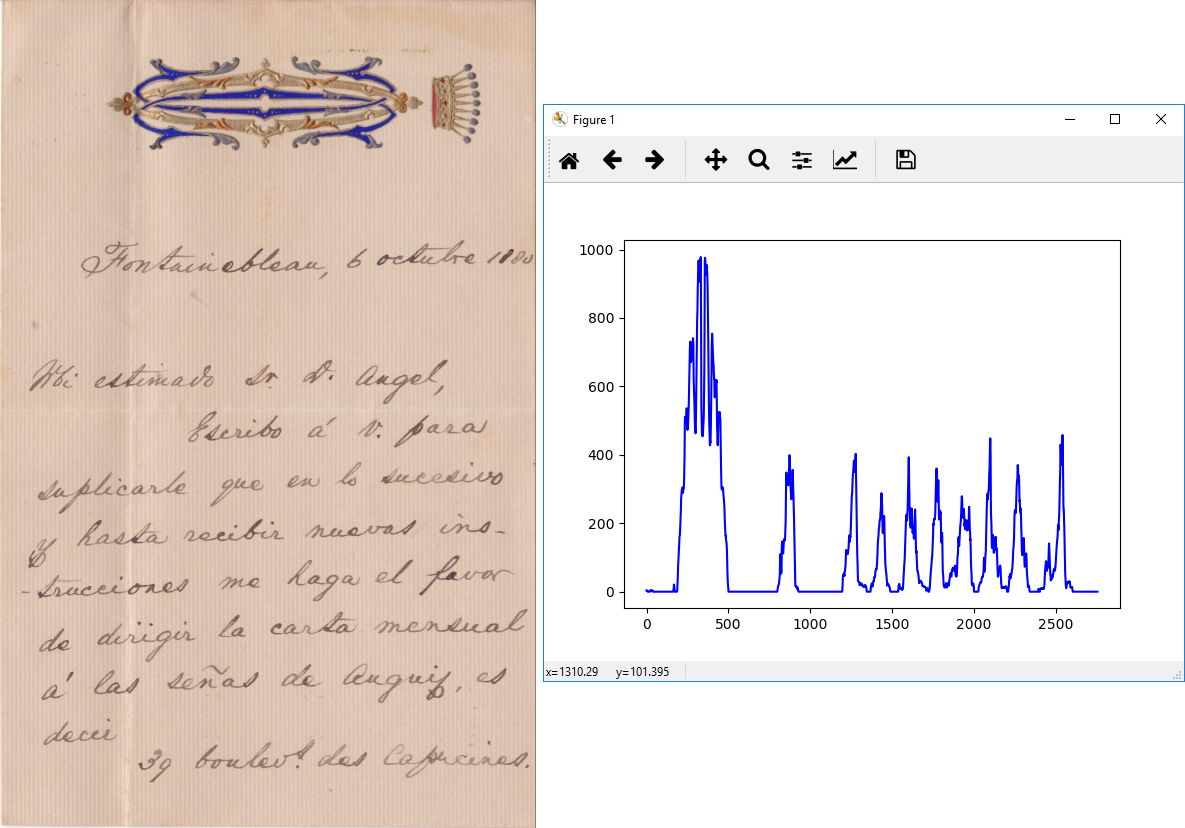 Fontainebleau, 6 octubre 1880
Mi estimado Sr. D. Angel,
Escribo á V. para
suplicarle que en lo sucesivo
y hasta recibir nuevas ins-
-trucciones me haga el favor
de dirigir la carta mensual
á las señas de Anguiz, es
decir
39 boulev.t des Capucines.
Figure 1
1000
800
600
400
200
0
0 500 1000 1500 2000 2500
x=1310.29 y=101.395